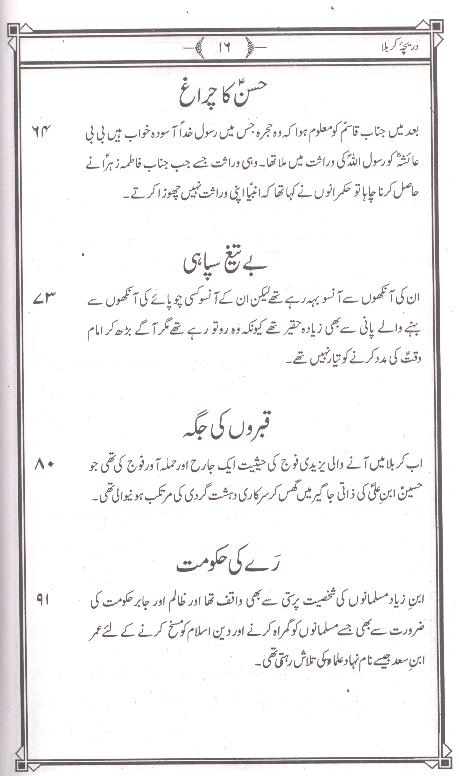 دریچۂ کربلا
۱۶
حسنؑ کا چراغ
بعد میں جناب قاسمؑ کو معلوم ہوا کہ وہ حجرہ جس میں رسول خداؐ آسودہ خواب ہیں بی بی
۶۴
عائشہؓ کو رسول اللہؐ کی وراثت میں ملا تھا۔ وہی وراثت جسے جب جناب فاطمہ زہراؑ نے
حاصل کرنا چاہا تو حکمرانوں نے کہا تھا کہ انبیاؑ اپنی وراثت نہیں چھوڑا کرتے۔
بے تیغ سپاہی
ان کی آنکھوں سے آنسو بہہ رہے تھے لیکن ان کے آنسو کسی چوپائے کی آنکھوں سے
۷۳
بہنے والے پانی سے بھی زیادہ حقیر تھے کیونکہ وہ رو تو رہے تھے مگر آگے بڑھ کر امام
وقتؑ کی مدد کرنے کو تیار نہیں تھے۔
قبروں کی جگہ
اب کربلا میں آنے والی یزیدی فوج کی حیثیت ایک جارح اور حملہ آور فوج کی تھی جو
۸۰
حسینؑ ابن علیؑ کی ذاتی جاگیر میں گھس کر سرکاری دہشت گردی کی مرتکب ہونیوالی تھی۔
رَے کی حکومت
ابنِ زیاد مسلمانوں کی شخصیت پرستی سے بھی واقف تھا اور ظالم اور جابر حکومت کی
۹۱
ضرورت سے بھی جسے مسلمانوں کو گمراہ کرنے اور دین اسلام کو مسخ کرنے کے لئے عمر
ابنِ سعد جیسے نام نہاد علماء کی تلاش رہتی تھی۔